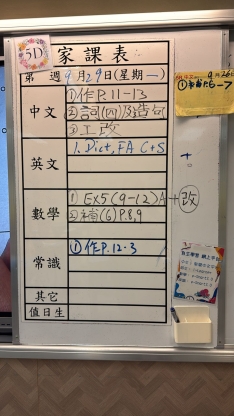 5D
家課表
第 週 9月29日(星期一)
中文
①作P.11-13
②詞(四)及造句
③工改
英文
1. Dict, FA C+S
數學
① EX5(9-12)A+改
②補(6)P.8,9
常識
①作P.12-3
其它
值日生
自主學習 網上平台